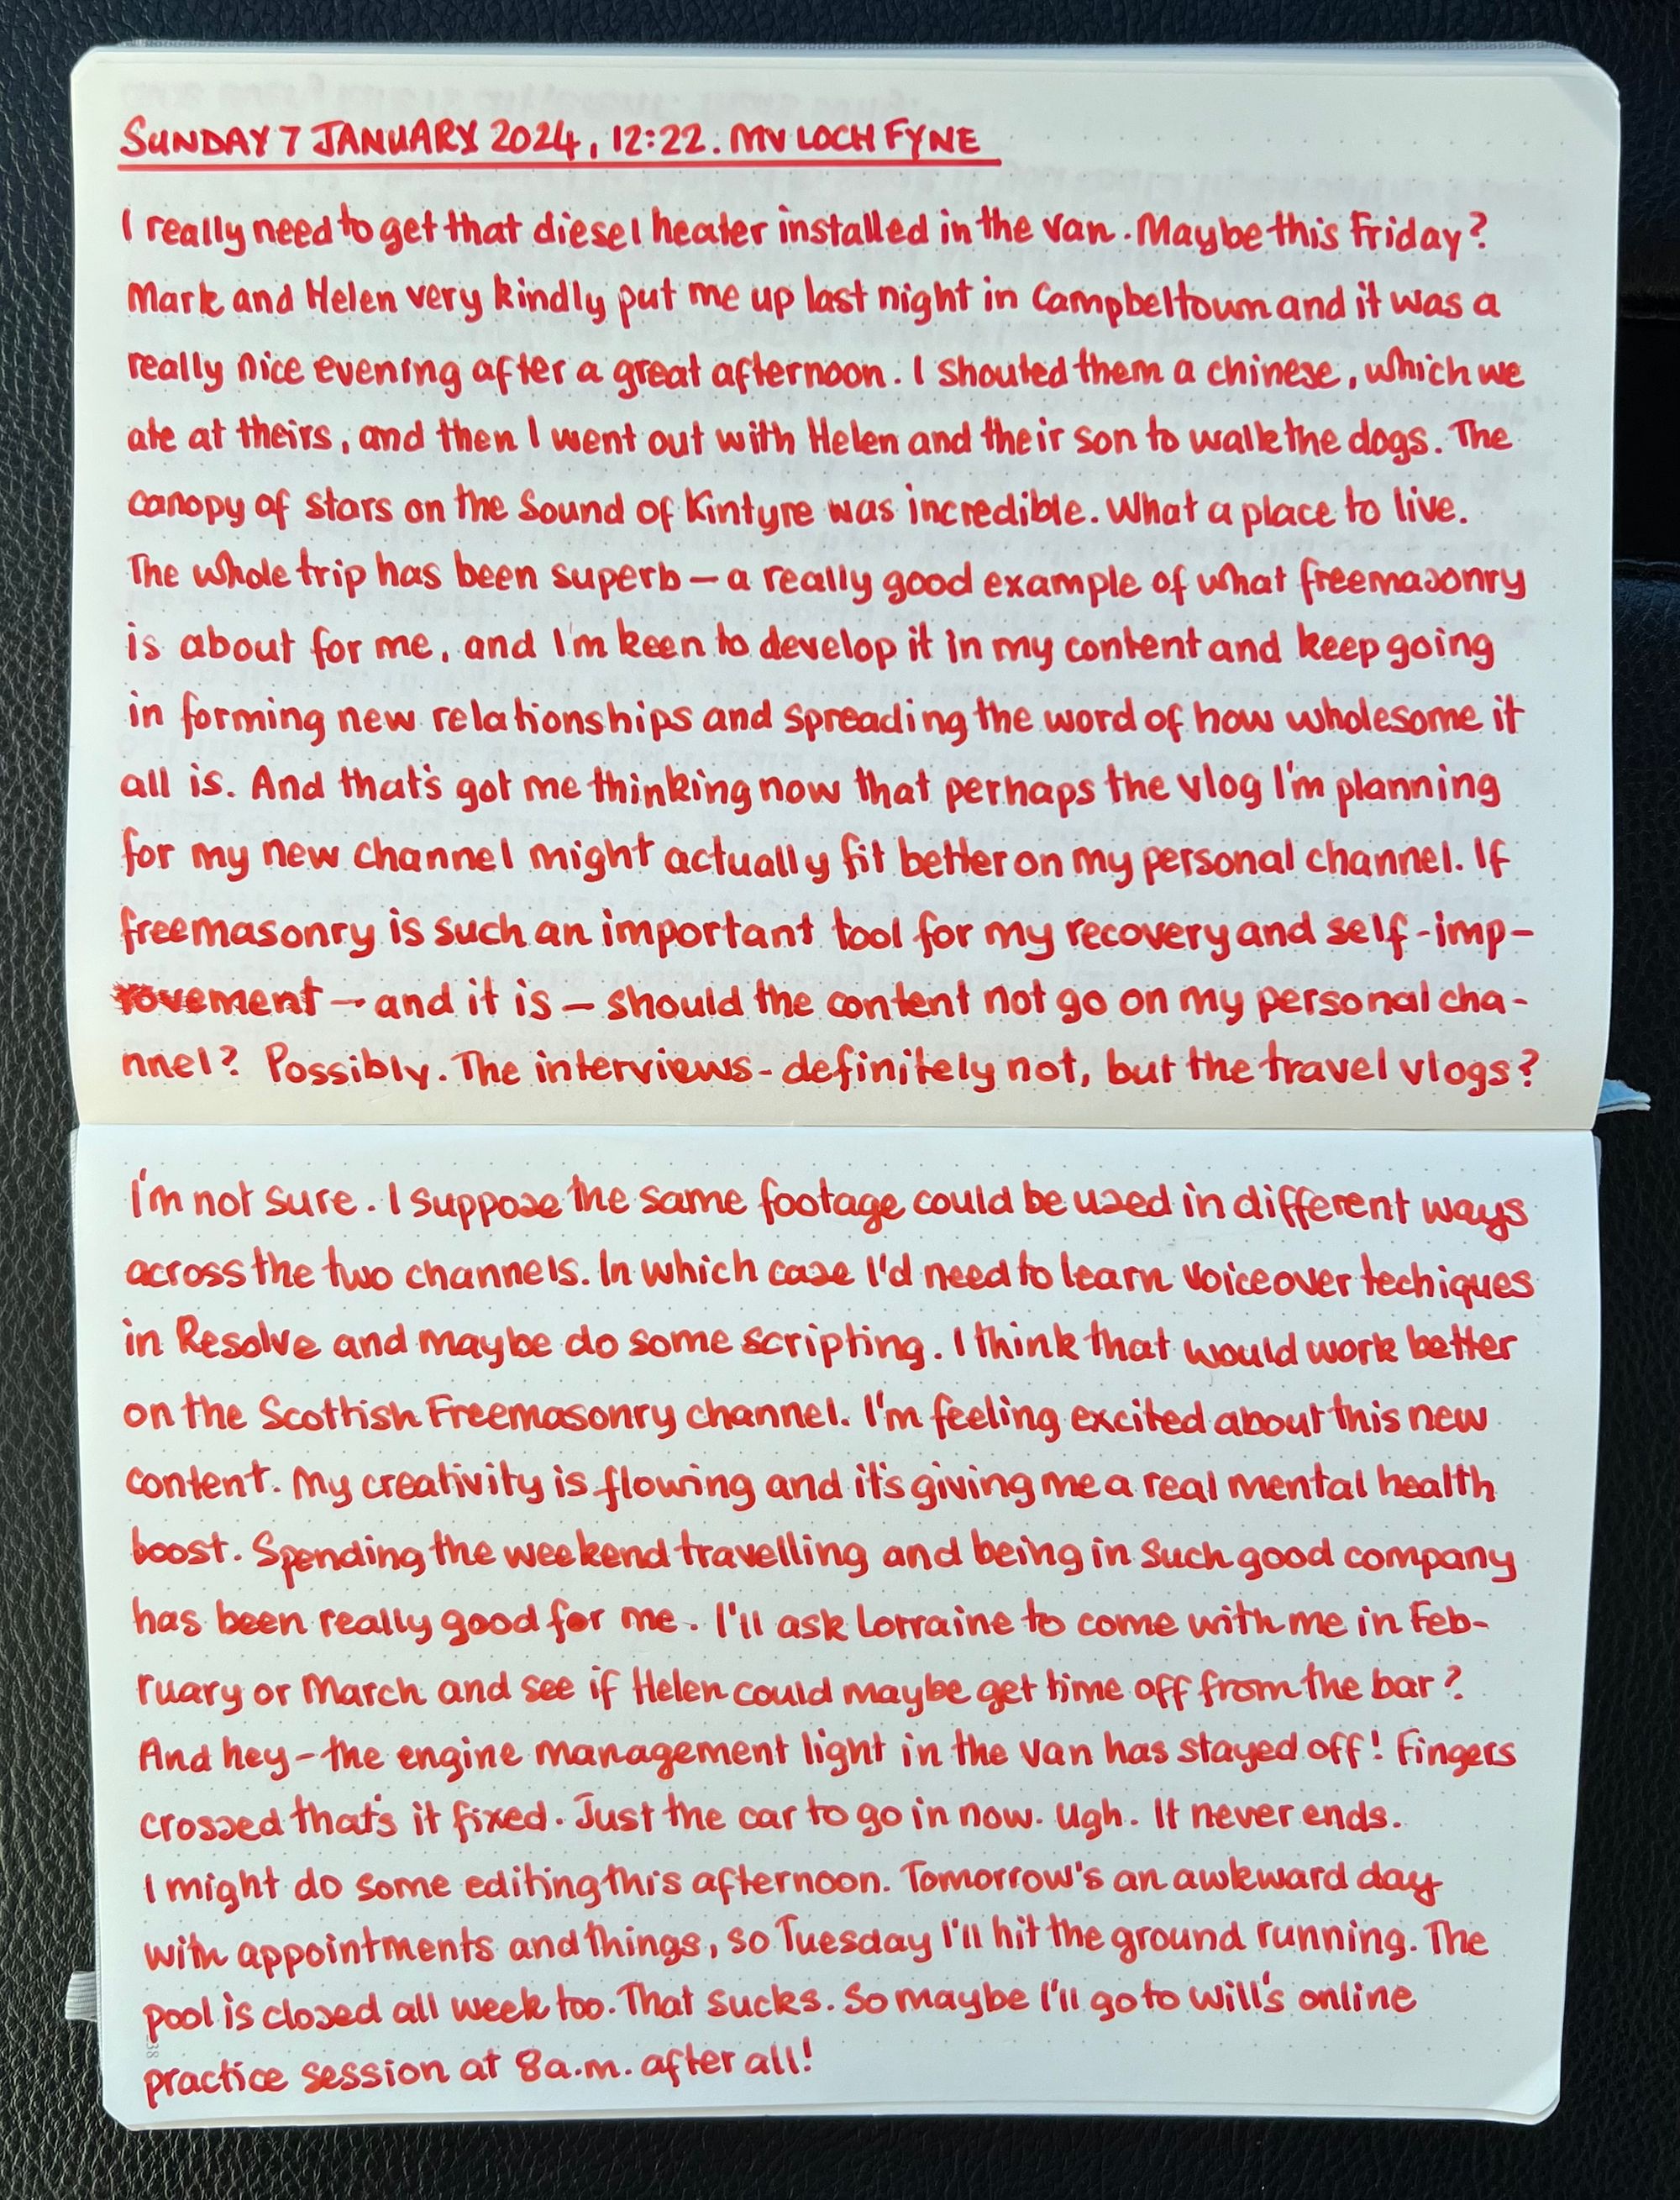 SUNDAY 7 JANUARY 2024, 12:22. MV LOCH FYNE
I really need to get that diesel heater installed in the van. Maybe this Friday?
Mark and Helen very kindly put me up last night in Campbeltown and it was a
really nice evening after a great afternoon. I shouted them a chinese, which we
ate at theirs, and then I went out with Helen and their son to walk the dogs. The
canopy of stars on the Sound of Kintyre was incredible. What a place to live.
The whole trip has been superb — a really good example of what freemasonry
is about for me, and I'm keen to develop it in my content and keep going
in forming new relationships and spreading the word of how wholesome it
all is. And that's got me thinking now that perhaps the vlog I'm planning
for my new channel might actually fit better on my personal channel. If
freemasonry is such an important tool for my recovery and self-imp-
rovement — and it is — should the content not go on my personal cha-
nnel? Possibly. The interviews - definitely not, but the travel vlogs?
I'm not sure. I suppose the same footage could be used in different ways
across the two channels. In which case I'd need to learn voiceover techiques
in Resolve and maybe do some scripting. I think that would work better
on the Scottish Freemasonry channel. I'm feeling excited about this new
content. My creativity is flowing and it's giving me a real mental health
boost. Spending the weekend travelling and being in such good company
has been really good for me. I'll ask Lorraine to come with me in Feb-
ruary or March and see if Helen could maybe get time off from the bar?
And hey — the engine management light in the van has stayed off! Fingers
crossed that's it fixed. Just the car to go in now. Ugh. It never ends.
I might do some editing this afternoon. Tomorrow's an awkward day
with appointments and things, so Tuesday I'll hit the ground running. The
pool is closed all week too. That sucks. So maybe I'll go to Will's online
practice session at 8a.m. after all!
38